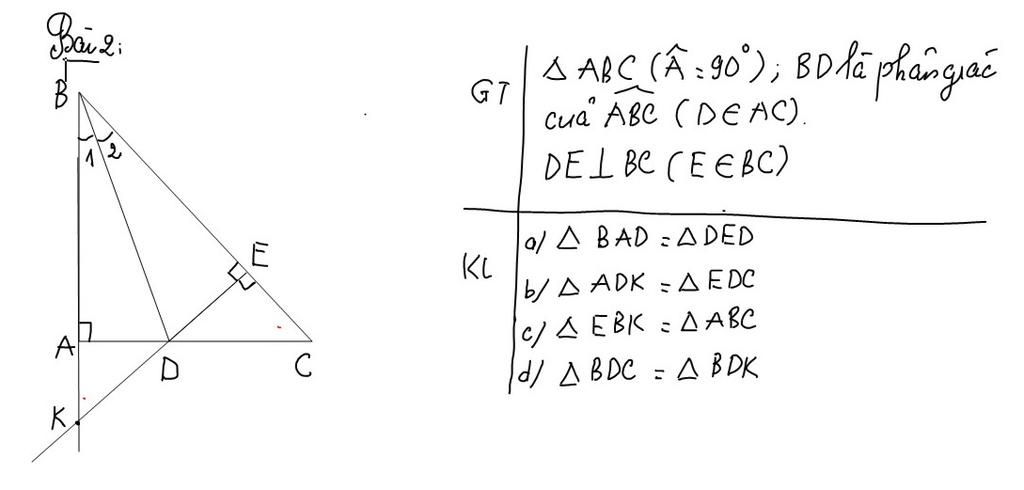 Bài 2:
B
1 2
E
A
D
C
K
GT
Δ ABC (Â = 90°); BD là phân giác
của ABC (D ∈ AC).
DE ⊥ BC (E ∈ BC)
KL
a/ Δ BAD = Δ DED
b/ Δ ADK = Δ EDC
c/ Δ EBK = Δ ABC
d/ Δ BDC = Δ BDK